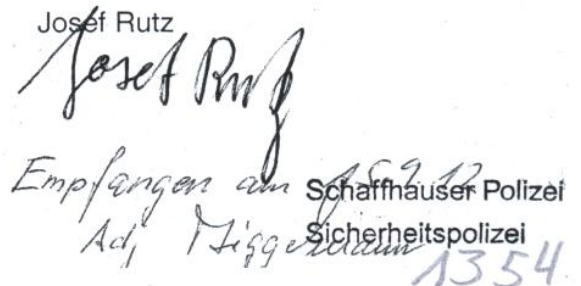 Josef Rutz
Josef Rutz
Empfangen am
Schaffhauser Polizei
Adj
Sicherheitspolizei
1354